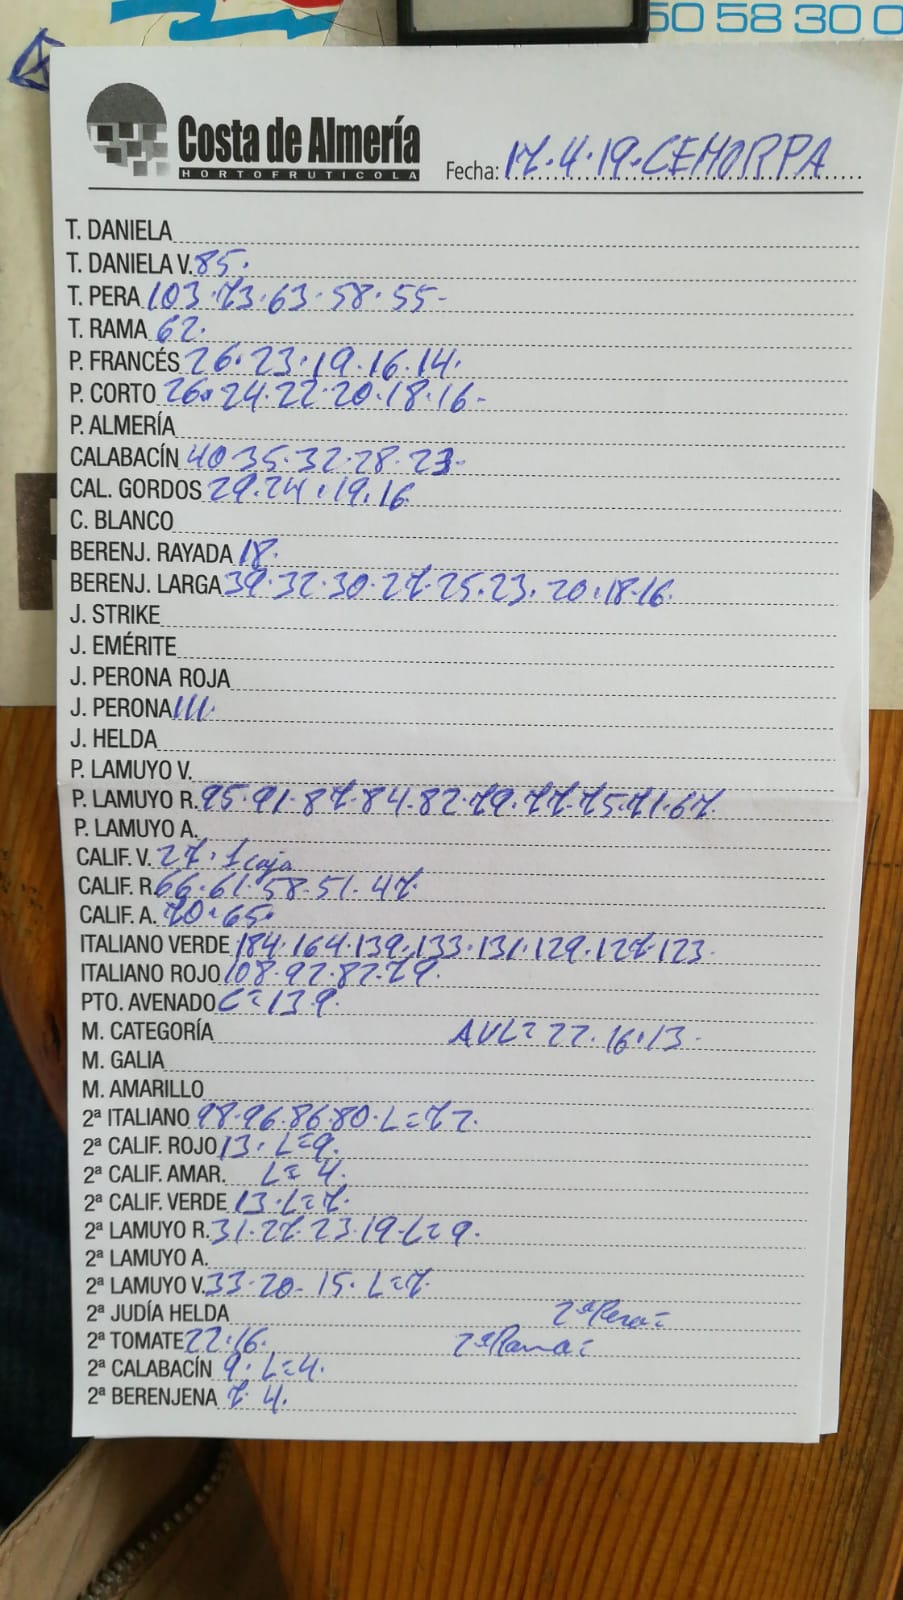 50 58 30 0
Costa de Almería
HORTOFRUTICOLA
Fecha: 17.4.19.CEHORPA
T. DANIELA
T. DANIELA V. 85.
T. PERA 103.73.63.58.55-
T. RAMA 62.
P. FRANCÉS 26.23.19.16.14.
P. CORTO 26.24.22.20.18.16-
P. ALMERÍA
CALABACÍN 40 35.32.28.23-
CAL. GORDOS 29.24.19.16
C. BLANCO
BERENJ. RAYADA 18.
BERENJ. LARGA 39.32.30.27.25.23.20.18.16.
J. STRIKE
J. EMÉRITE
J. PERONA ROJA
J. PERONA 111.
J. HELDA
P. LAMUYO V.
P. LAMUYO R. 95.91.87.84.82.79.77.75.71.67.
P. LAMUYO A.
CALIF. V. 27. 1 caja
CALIF. R. 66.61.58.51.47.
CALIF. A. 70.65.
ITALIANO VERDE 184.164.139.133.131.129.127.123.
ITALIANO ROJO 108.92.82.79.
PTO. AVENADO C=13 9.
M. CATEGORÍA AVL=22.16.13-
M. GALIA
M. AMARILLO
2ª ITALIANO 98.96.86.80.L=72.
2ª CALIF. ROJO 13. L=9.
2ª CALIF. AMAR. L=4.
2ª CALIF. VERDE 13.L=7.
2ª LAMUYO R. 31.27.23.19.L=9.
2ª LAMUYO A.
2ª LAMUYO V. 33.20-15.L=7.
2ª JUDÍA HELDA 2ª Pera=
2ª TOMATE 22.16. 2ª Rama=
2ª CALABACÍN 9. L=4.
2ª BERENJENA 7. 4.